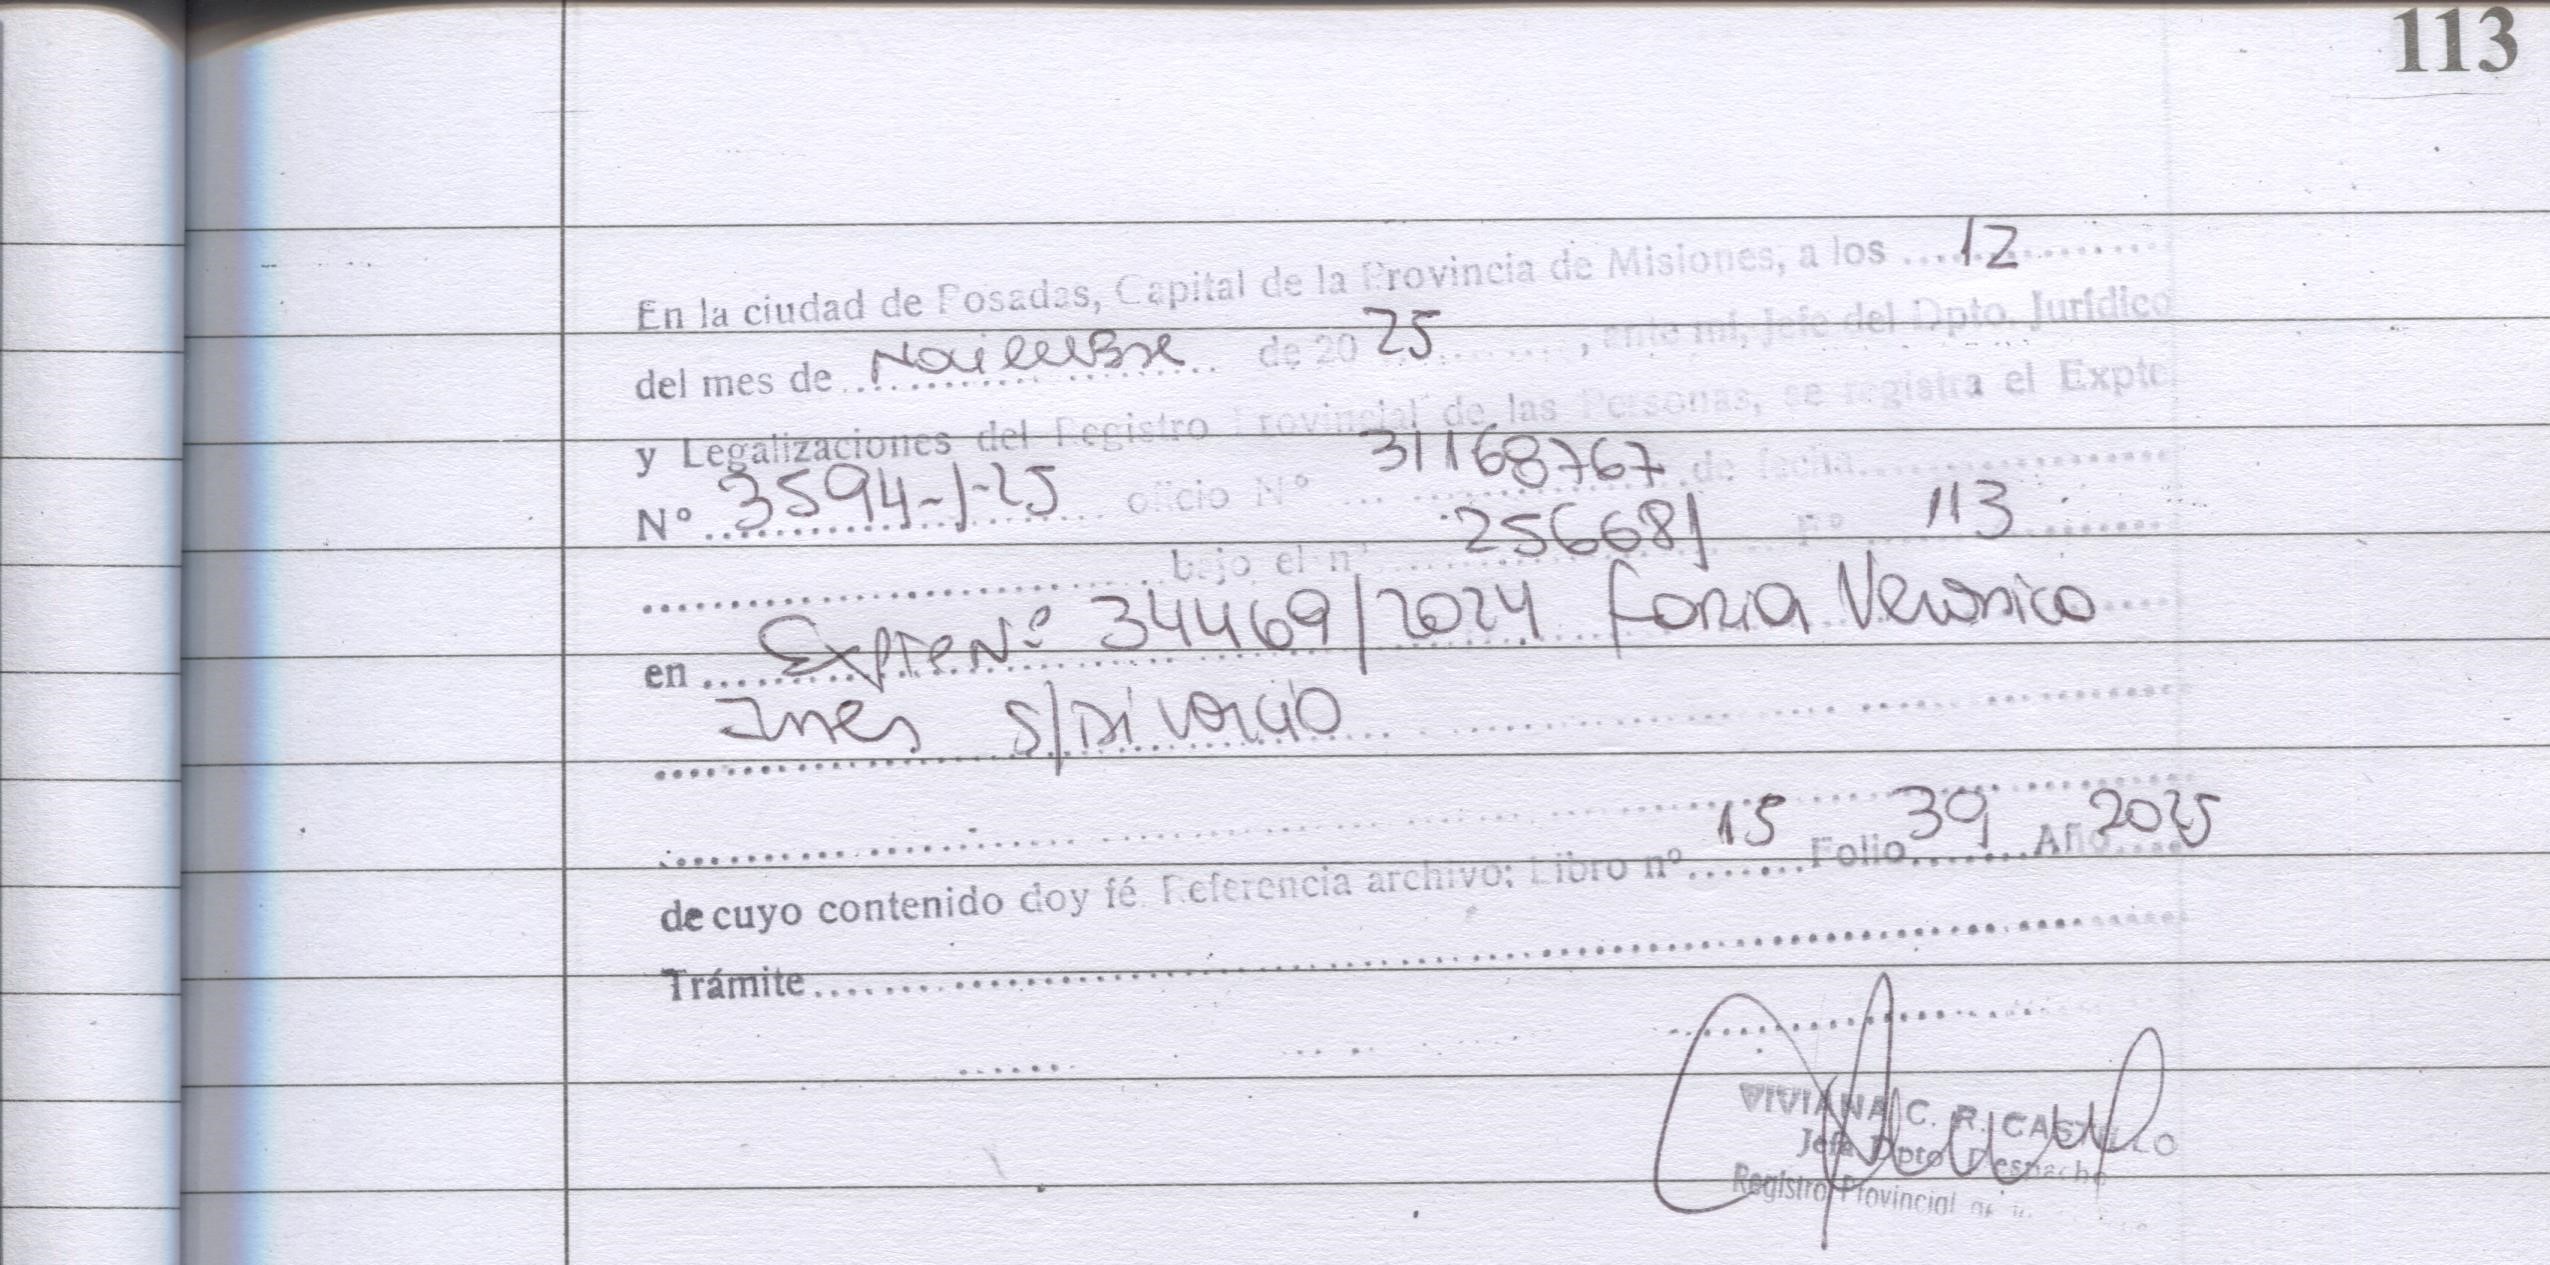 113
En la ciudad de Posadas, Capital de la Provincia de Misiones, a los ....12............
del mes de ....Noviembre.... de 20 25 ........, ante mí, Jefe del Dpto. Jurídico
y Legalizaciones del Registro Provincial de las Personas, se registra el Expte
Nº ..3594-1-25.... oficio Nº ... 31168767 ..de fecha..................
.............................. bajo el nº ....256681.... Fº ....113........
en ..Expte Nº 34469/2024 Foria Veronica....
Ines S/Divorcio
de cuyo contenido doy fé. Referencia archivo: Libro nº..15..Folio..39..Año..2025
Trámite..........................................
VIVIANA C. R. CASTILLO
Jefa Dpto Despacho
Registro Provincial de